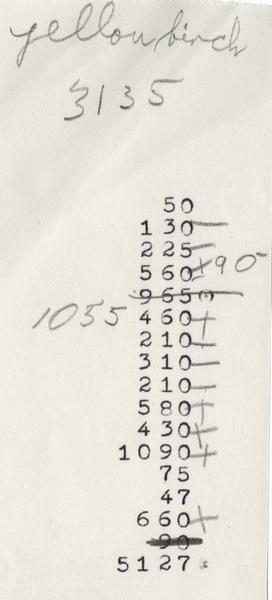 yellow birch
3135
50
1 30 -
2 25 -
5 60 + 90
9 65
1055
4 60 +
2 10 -
3 10 -
2 10 -
5 80 +
4 30 +
10 90 +
75
47
6 60 +
90
51 27 .